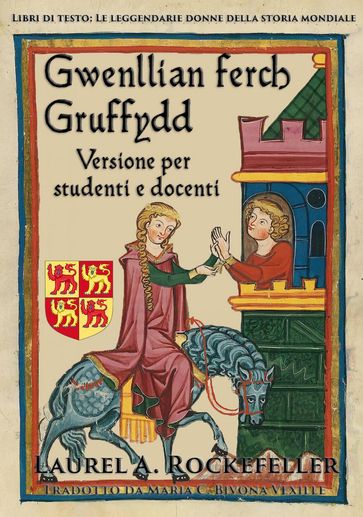 Libri di testo; Le leggendarie donne della storia mondiale
Gwenllian ferch
Gruffydd
Versione per
studenti e docenti
Laurel A. Rockefeller
Tradotto da Maria C. Bivona Vexille